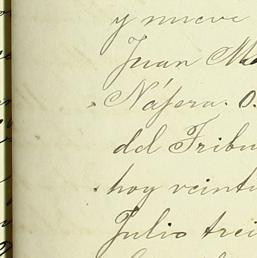 y nueve
Juan M
Nájera. O.
del Tribu
hoy veinti
Julio trei